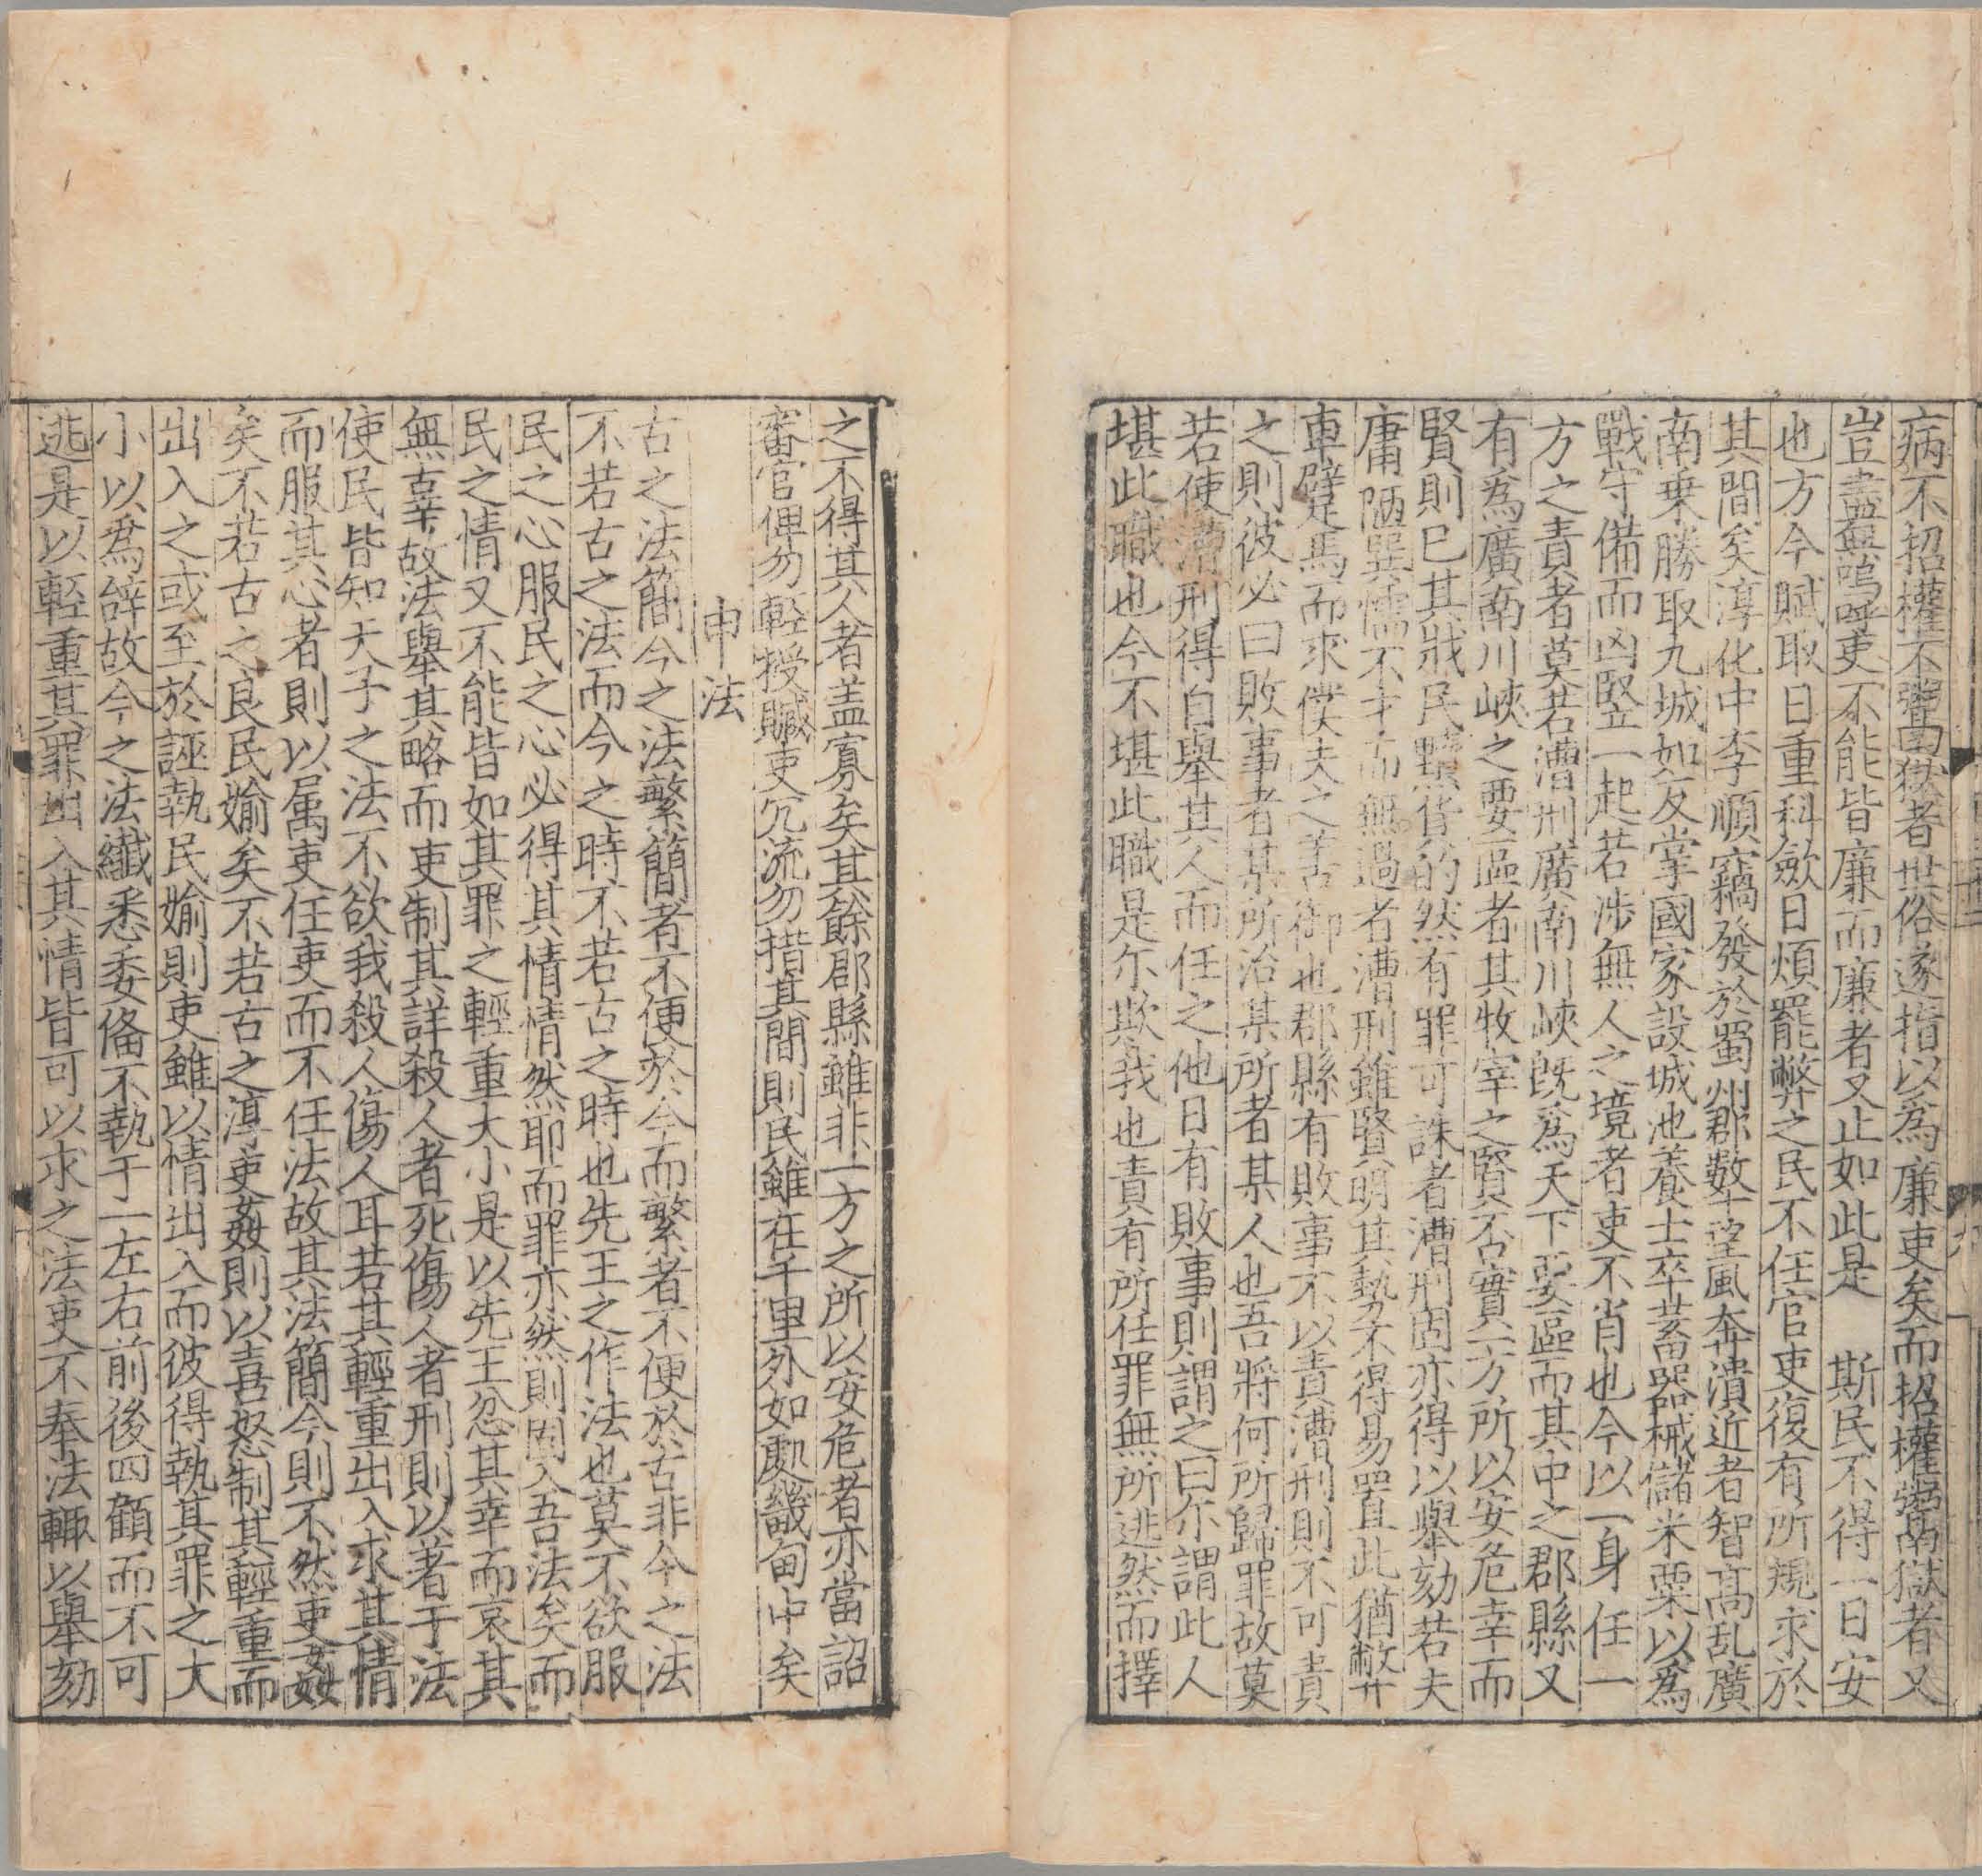 病不招權不鬻獄者世俗遂指以爲廉吏矣而招權鬻獄者又
豈盡嗚呼吏不能皆廉而廉者又止如此是　斯民不得一日安
也方今賦取日重科歛日煩罷弊之民不任官吏復有所規求於
其間矣淳化中李順竊發於蜀州郡數十望風奔潰近者智髙乱廣
南乗勝取九城如反掌國家設城池養士卒蓄器械儲米粟以爲
戰守備而凶竪一起若涉無人之境者吏不肖也今以一身任一
方之責者莫若漕刑廣南川峽旣爲天下要區而其中之郡縣又
有爲廣南川峽之要區者其牧宰之賢否實一方所以安危幸而
賢則已其戕民黷貨的然有罪可誅者漕刑固亦得以舉劾若夫
庸陋巽懦不才而無過者漕刑雖賢明其勢不得易置此猶弊
車躄馬而求僕夫之善御也郡縣有敗事不以責漕刑則不可責
之則彼必曰敗事者某所治某所者某人也吾將何所歸罪故莫
若使漕刑得自舉其人而任之他日有敗事則謂之曰尓謂此人
堪此職也今不堪此職是尓欺我也責有所任罪無所逃然而擇
之不得其人者盖寡矣其餘郡縣雖非一方之所以安危者亦當詔
審官俾勿輕授贓吏冗流勿措其間則民雖在千里外如處畿甸中矣
申法
古之法簡今之法繁簡者不便於今而繁者不便於古非今之法
不若古之法而今之時不若古之時也先王之作法也莫不欲服
民之心服民之心必得其情情然耶而罪亦然則固入吾法矣而
民之情又不能皆如其罪之輕重大小是以先王忿其辜而哀其
無辜故法舉其略而吏制其詳殺人者死傷人者刑則以著于法
使民皆知天子之法不欲我殺人傷人耳若其輕重出入求其情
而服其心者則以属吏任吏而不任法故其法簡今則不然吏姦
矣不若古之良民媮矣不若古之淳吏姦則以喜怒制其輕重而
出入之或至於誣執民媮則吏雖以情出入而彼得執其罪之大
小以爲辭故今之法纖悉委僃不執于一左右前後四顧而不可
逃是以輕重其罪出入其情皆可以求之法吏不奉法輙以舉劾